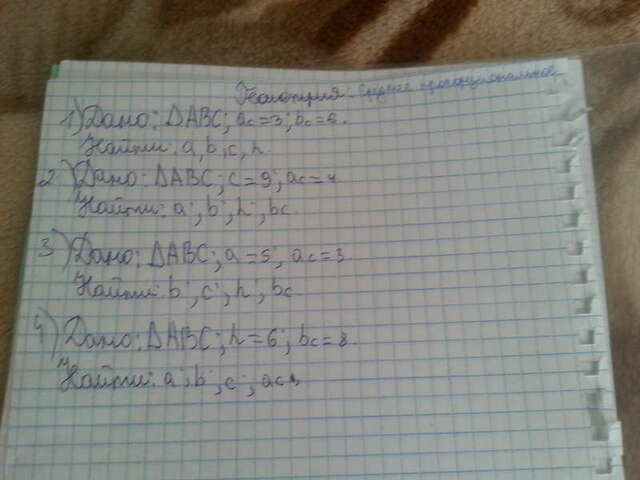 Геометрия: Среднее пропорциональное
1) Дано: ΔABC; ac=3; bc=6.
Найти: a, b, c, h.
2) Дано: ΔABC; c=9; ac=4
Найти: a; b; h; bc.
3) Дано: ΔABC; a=5; ac=3.
Найти: b; c; h; bc
4) Дано: ΔABC; h=6; bc=8.
Найти: a; b; c; ac.